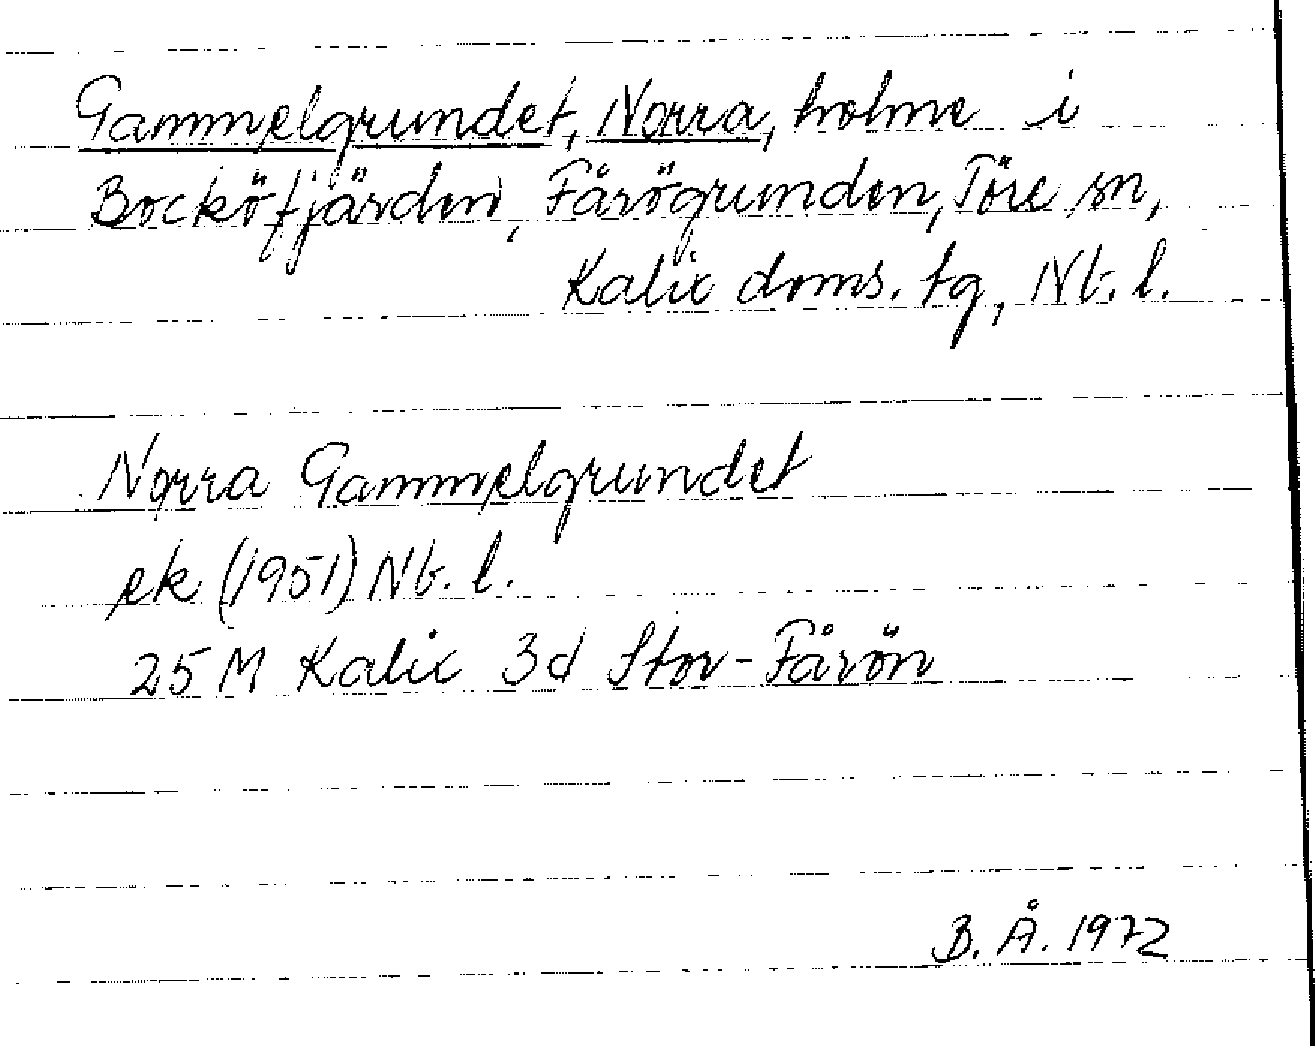 Gammelgrundet, Norra, holme i
Bocköfjärden, Fårögrunden, Töre sn,
Kalix doms. tg, Nb. l.
Norra Gammelgrundet
ek (1951) Nb. l.
25 M Kalix 3d Stor-Fårön
B. Å. 1972